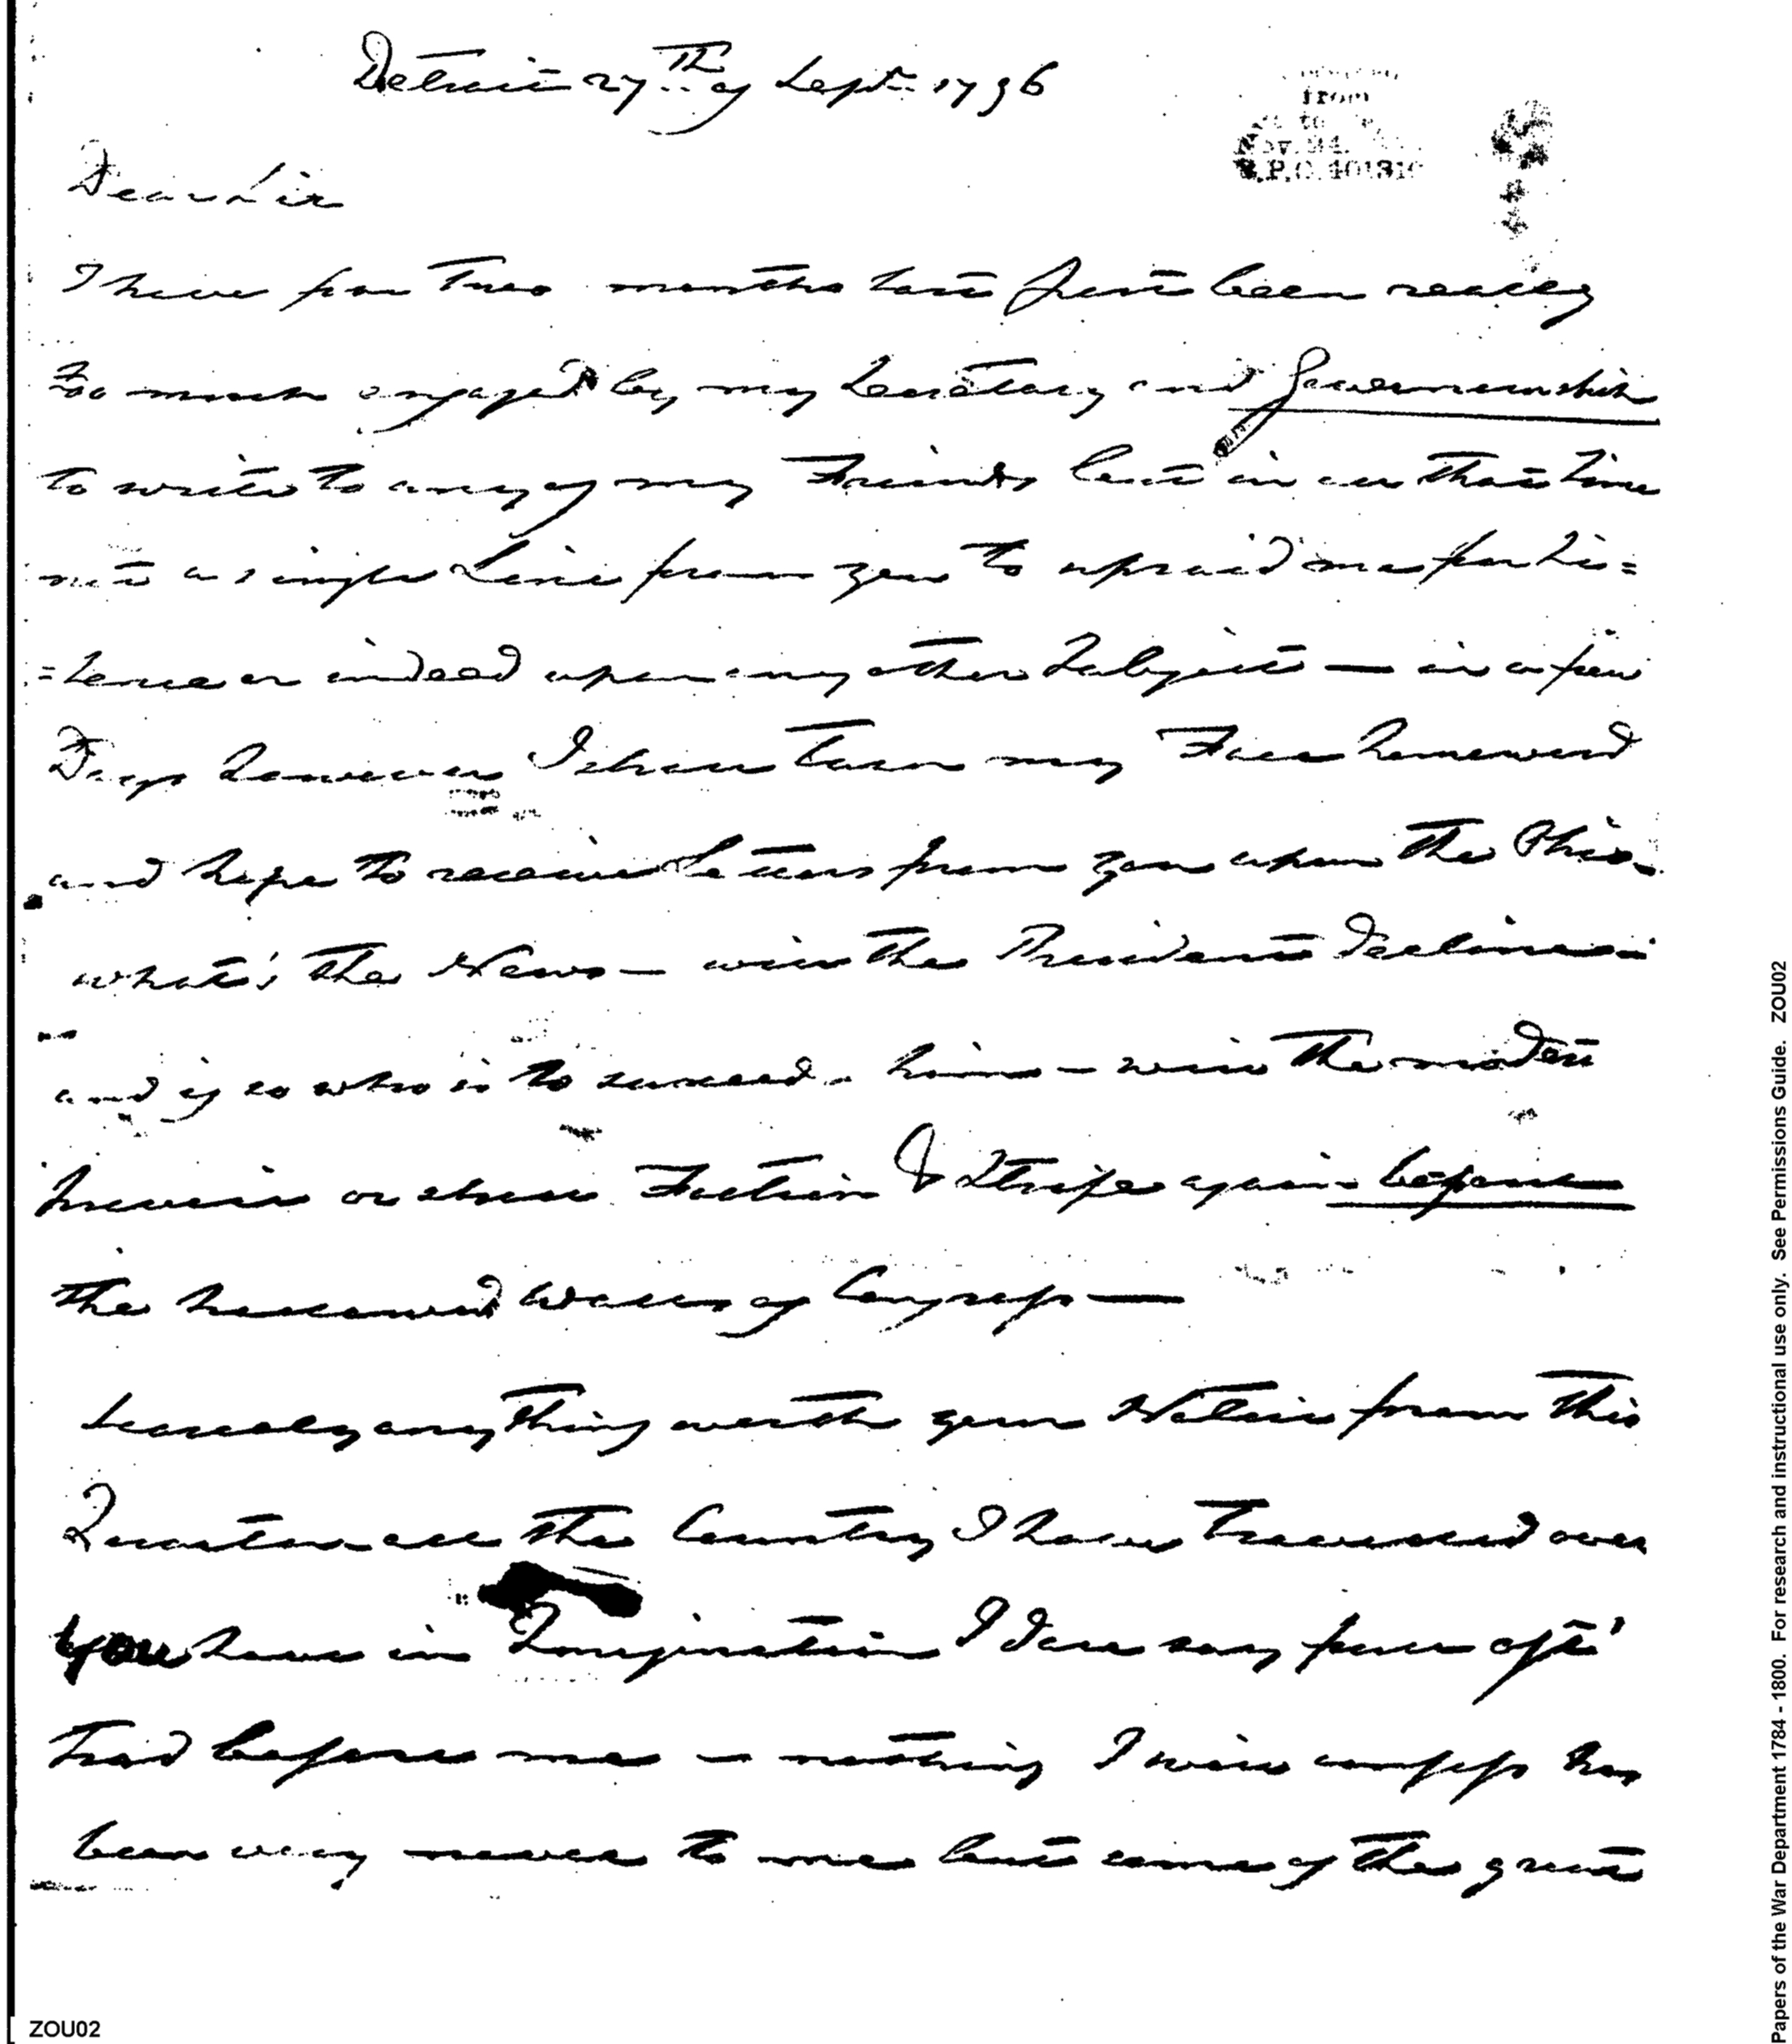 Detroit 27th of Sept. 1796
from
to
Nov. 24.
Dear Sir
I have for two months last past been really
too much engaged by my Secretary and Governorship
to write to any of my Friends but in all that time
not a single Line from you to upraid me for Si=
=lence or indeed upon any other Subject — in a few
Days however I shall turn my Face homeward
and hope to receive letters from you upon the Ohio.
what's the News — will the President decline
and if so who is to succeed him — will the modest
prevail or shall Faction & Strife again before
the hallowed Walls of Congress —
Scarcely any thing worth your Notice from this
Quarter all the Country I have traversed over
you have in Imagination I dare say full oft'
trod before me — nothing I will confess has
been very novel to me but some of the great
ZOU02
Papers of the War Department 1784 - 1800. For research and instructional use only. See Permissions Guide. ZOU02